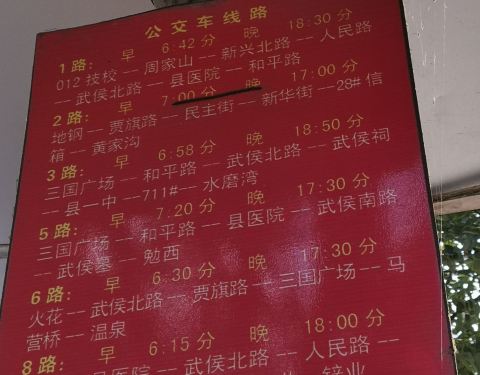 公交车线路
1路: 早 6:42分 晚 18:30分
012技校——周家山——新兴北路——人民路
——武侯北路——县医院——和平路
2路: 早 7:00分 晚 17:00分
地钢——贾旗路——民主街——新华街——28#信
箱——黄家沟
3路: 早 6:58分 晚 18:50分
三国广场——和平路——武侯北路——武侯祠
——县一中——711#——水磨湾
5路: 早 7:20分 晚 17:30分
三国广场——和平路——县医院——武侯南路
——武侯墓——勉西
6路: 早 6:30分 晚 17:30分
火花——武侯北路——贾旗路——三国广场——马
营桥——温泉
8路: 早 6:15分 晚 18:00分
县医院——武侯北路——人民路——
锌业